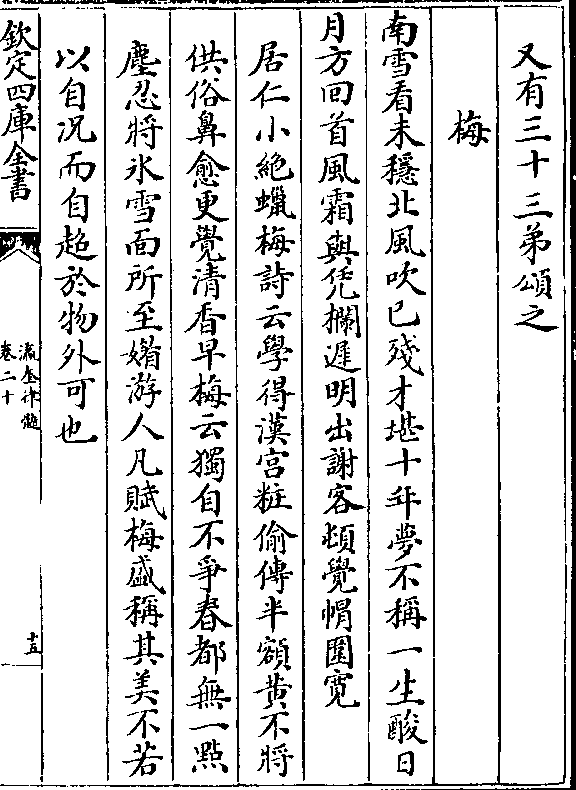 又有三十三弟頌之
梅
南雪看未穩北風吹已殘才堪十年夢不稱一生酸日
月方回首風霜與凭攔遲明出謝客頓覺帽圍寛
居仁小絶蠟梅詩云學得漢宫粧偷傳半額黄不將
供俗鼻愈更覺清香早梅云獨自不爭春都無一點
塵忍將氷雪面所至媚游人凡賦梅盛稱其美不若
以自况而自超於物外可也
欽定四庫全書
瀛奎律髓
卷二十
十五